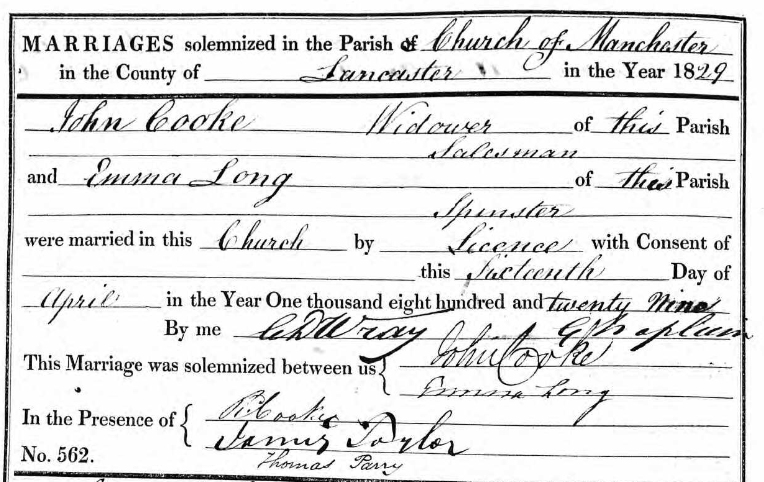 MARRIAGES solemnized in the Parish of Church of Manchester
in the County of Lancaster in the Year 1829
John Cooke Widower of this Parish
Salesman
and Emma Long of this Parish
Spinster
were married in this Church by Licence with Consent of
this Sixteenth Day of
April in the Year One thousand eight hundred and twenty Nine
By me C D Wray Chaplain
This Marriage was solemnized between us { John Cooke
Emma Long
In the Presence of { R. Cooke
James Taylor
Thomas Parry
No. 562.